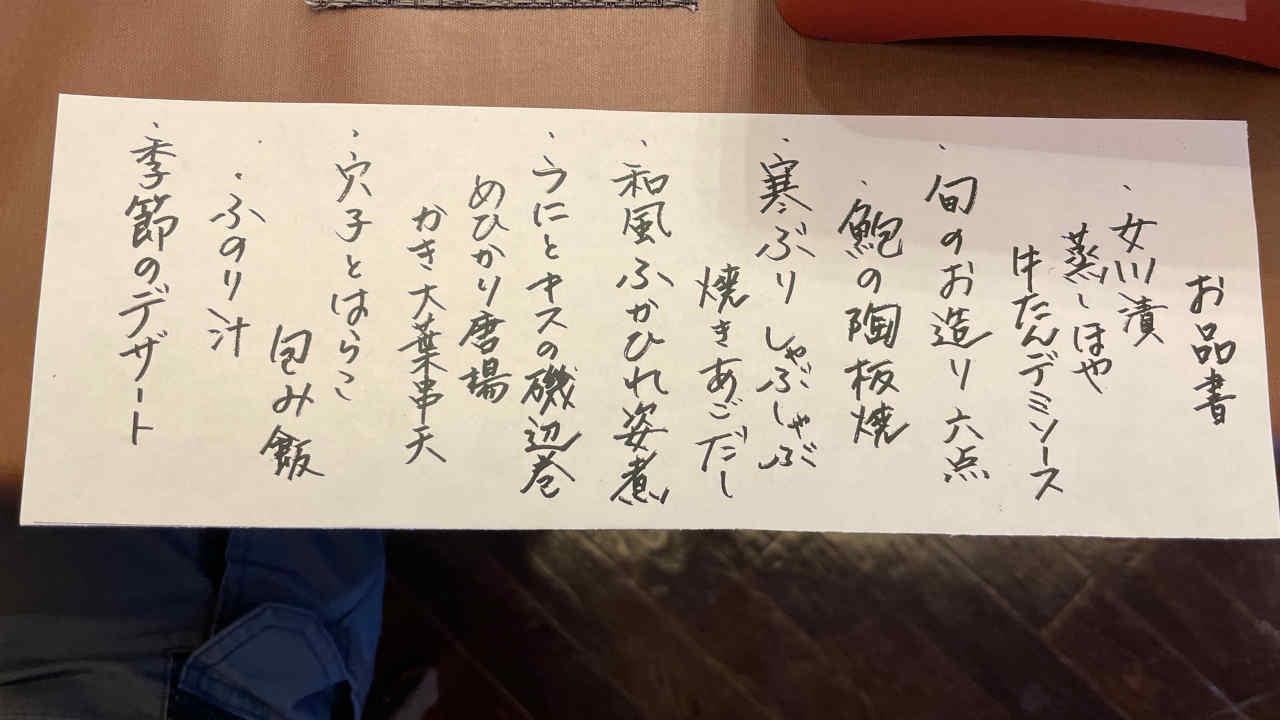 お品書
・女川漬
蒸しほや
牛たんデミソース
・旬のお造り 六点
・鮑の陶板焼
・寒ぶり しゃぶしゃぶ
焼きあごだし
・和風ふかひれ姿煮
・うにとキスの磯辺巻
めひかり唐揚
かき大葉串天
・穴子とはらこ
包み飯
・ふのり汁
・季節のデザート